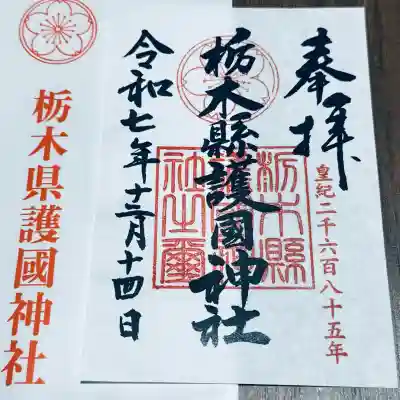 奉拝
皇紀二千六百八十五年
栃木縣護國神社
栃木縣護國神社之璽
令和七年十二月十四日
栃木県護國神社